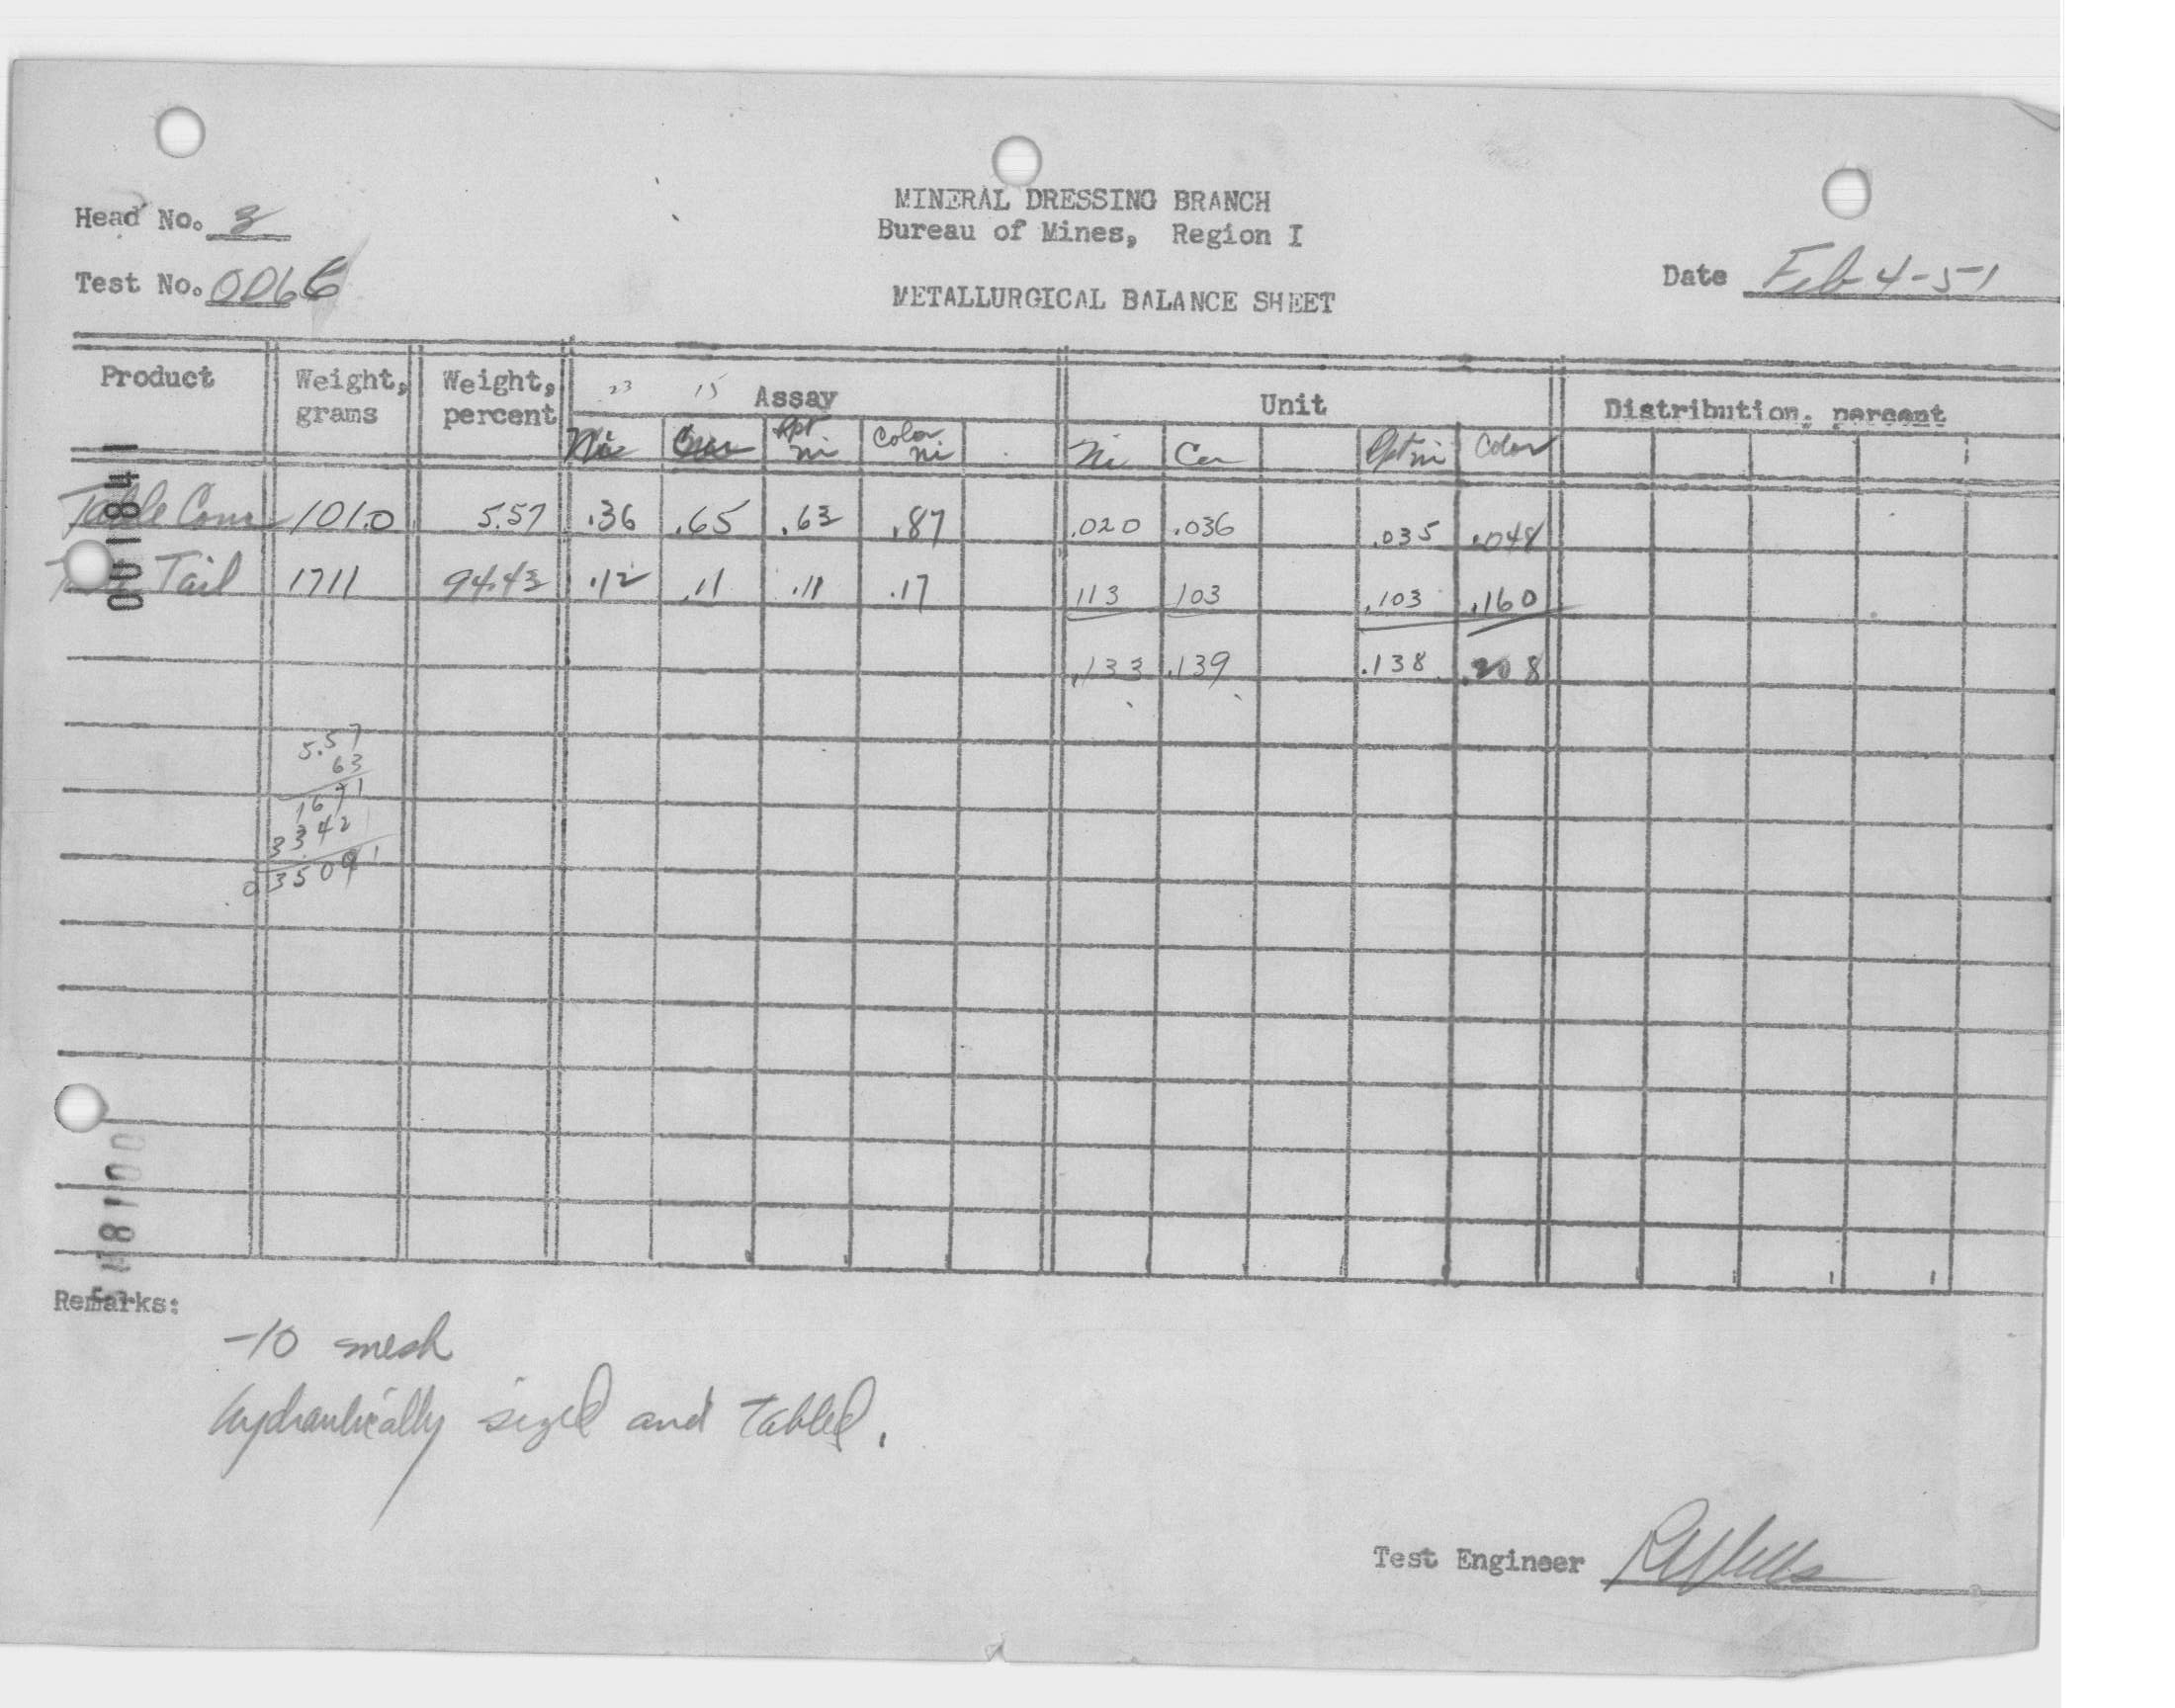 MINERAL DRESSING BRANCH
Bureau of Mines, Region I
METALLURGICAL BALANCE SHEET
Head No. 3
Test No.
Date Feb 4-51
Product Weight, grams Weight, percent 23 15 Assay Unit Distribution, percent
Ni Rpt Ni Color Ni Ni Cu Rpt Ni Color
Table Conc 101.0 5.57 .36 .65 .63 .87 .020 .036 .035 .048
Tail 1711 94.43 .12 .11 .11 .17 113 103 .103 .160
.133 .139 .138 .208
5.57
63
1671
3342
035091
001841
Remarks:
-10 mesh
hydraulically sized and tabled.
Test Engineer